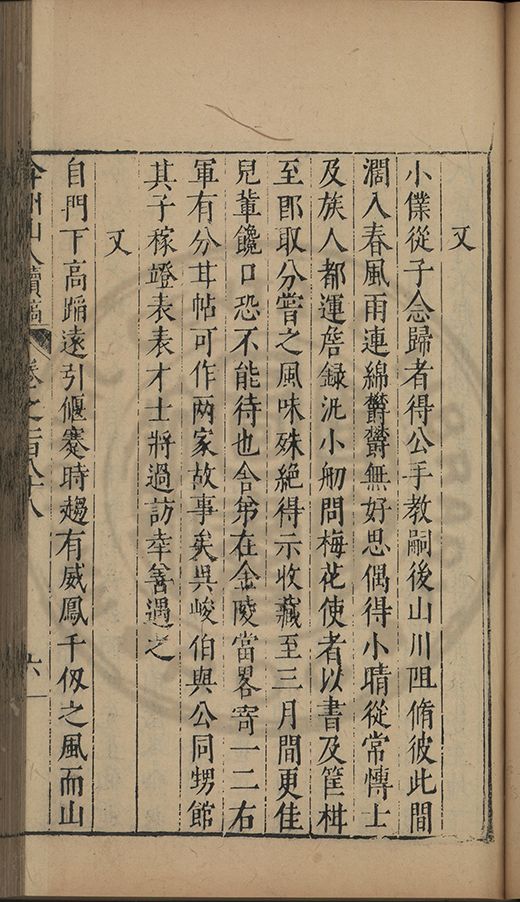 又
小僕從子念歸者得公手教嗣後山川阻脩彼此間
濶入春風雨連綿欝欝無好思偶得小晴從常愽士
及族人都運詹録汎小舠問梅花使者以書及筐柑
至即取分嘗之風味殊絶得示收藏至三月間更佳
兒輩饞口恐不能待也舍弟在金陵當畧寄一二右
軍有分甘帖可作两家故事矣吳峻伯與公同甥館
其子稼竳表表才士將過訪幸善遇之
又
自門下高蹈遠引偃蹇時趨有威鳳千仭之風而山
弇州山人續稿
六